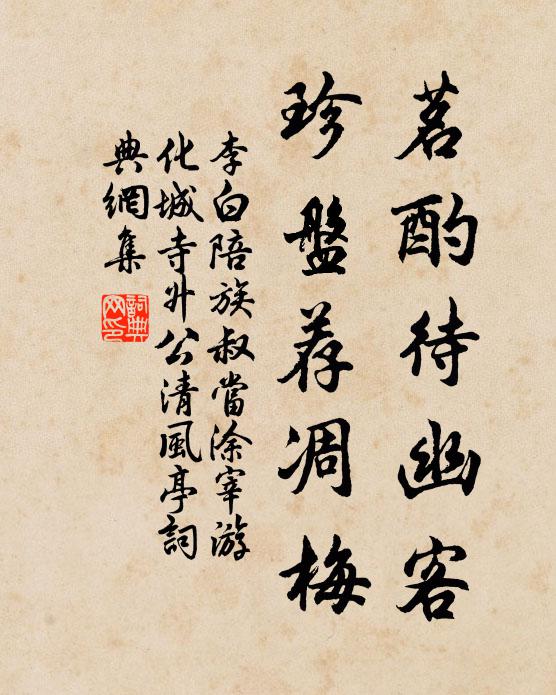 茗酌待幽客
珍盤荐凋梅
李白陪族叔當涂宰游
化城寺升公清風亭詞
典網集
詞典
网印